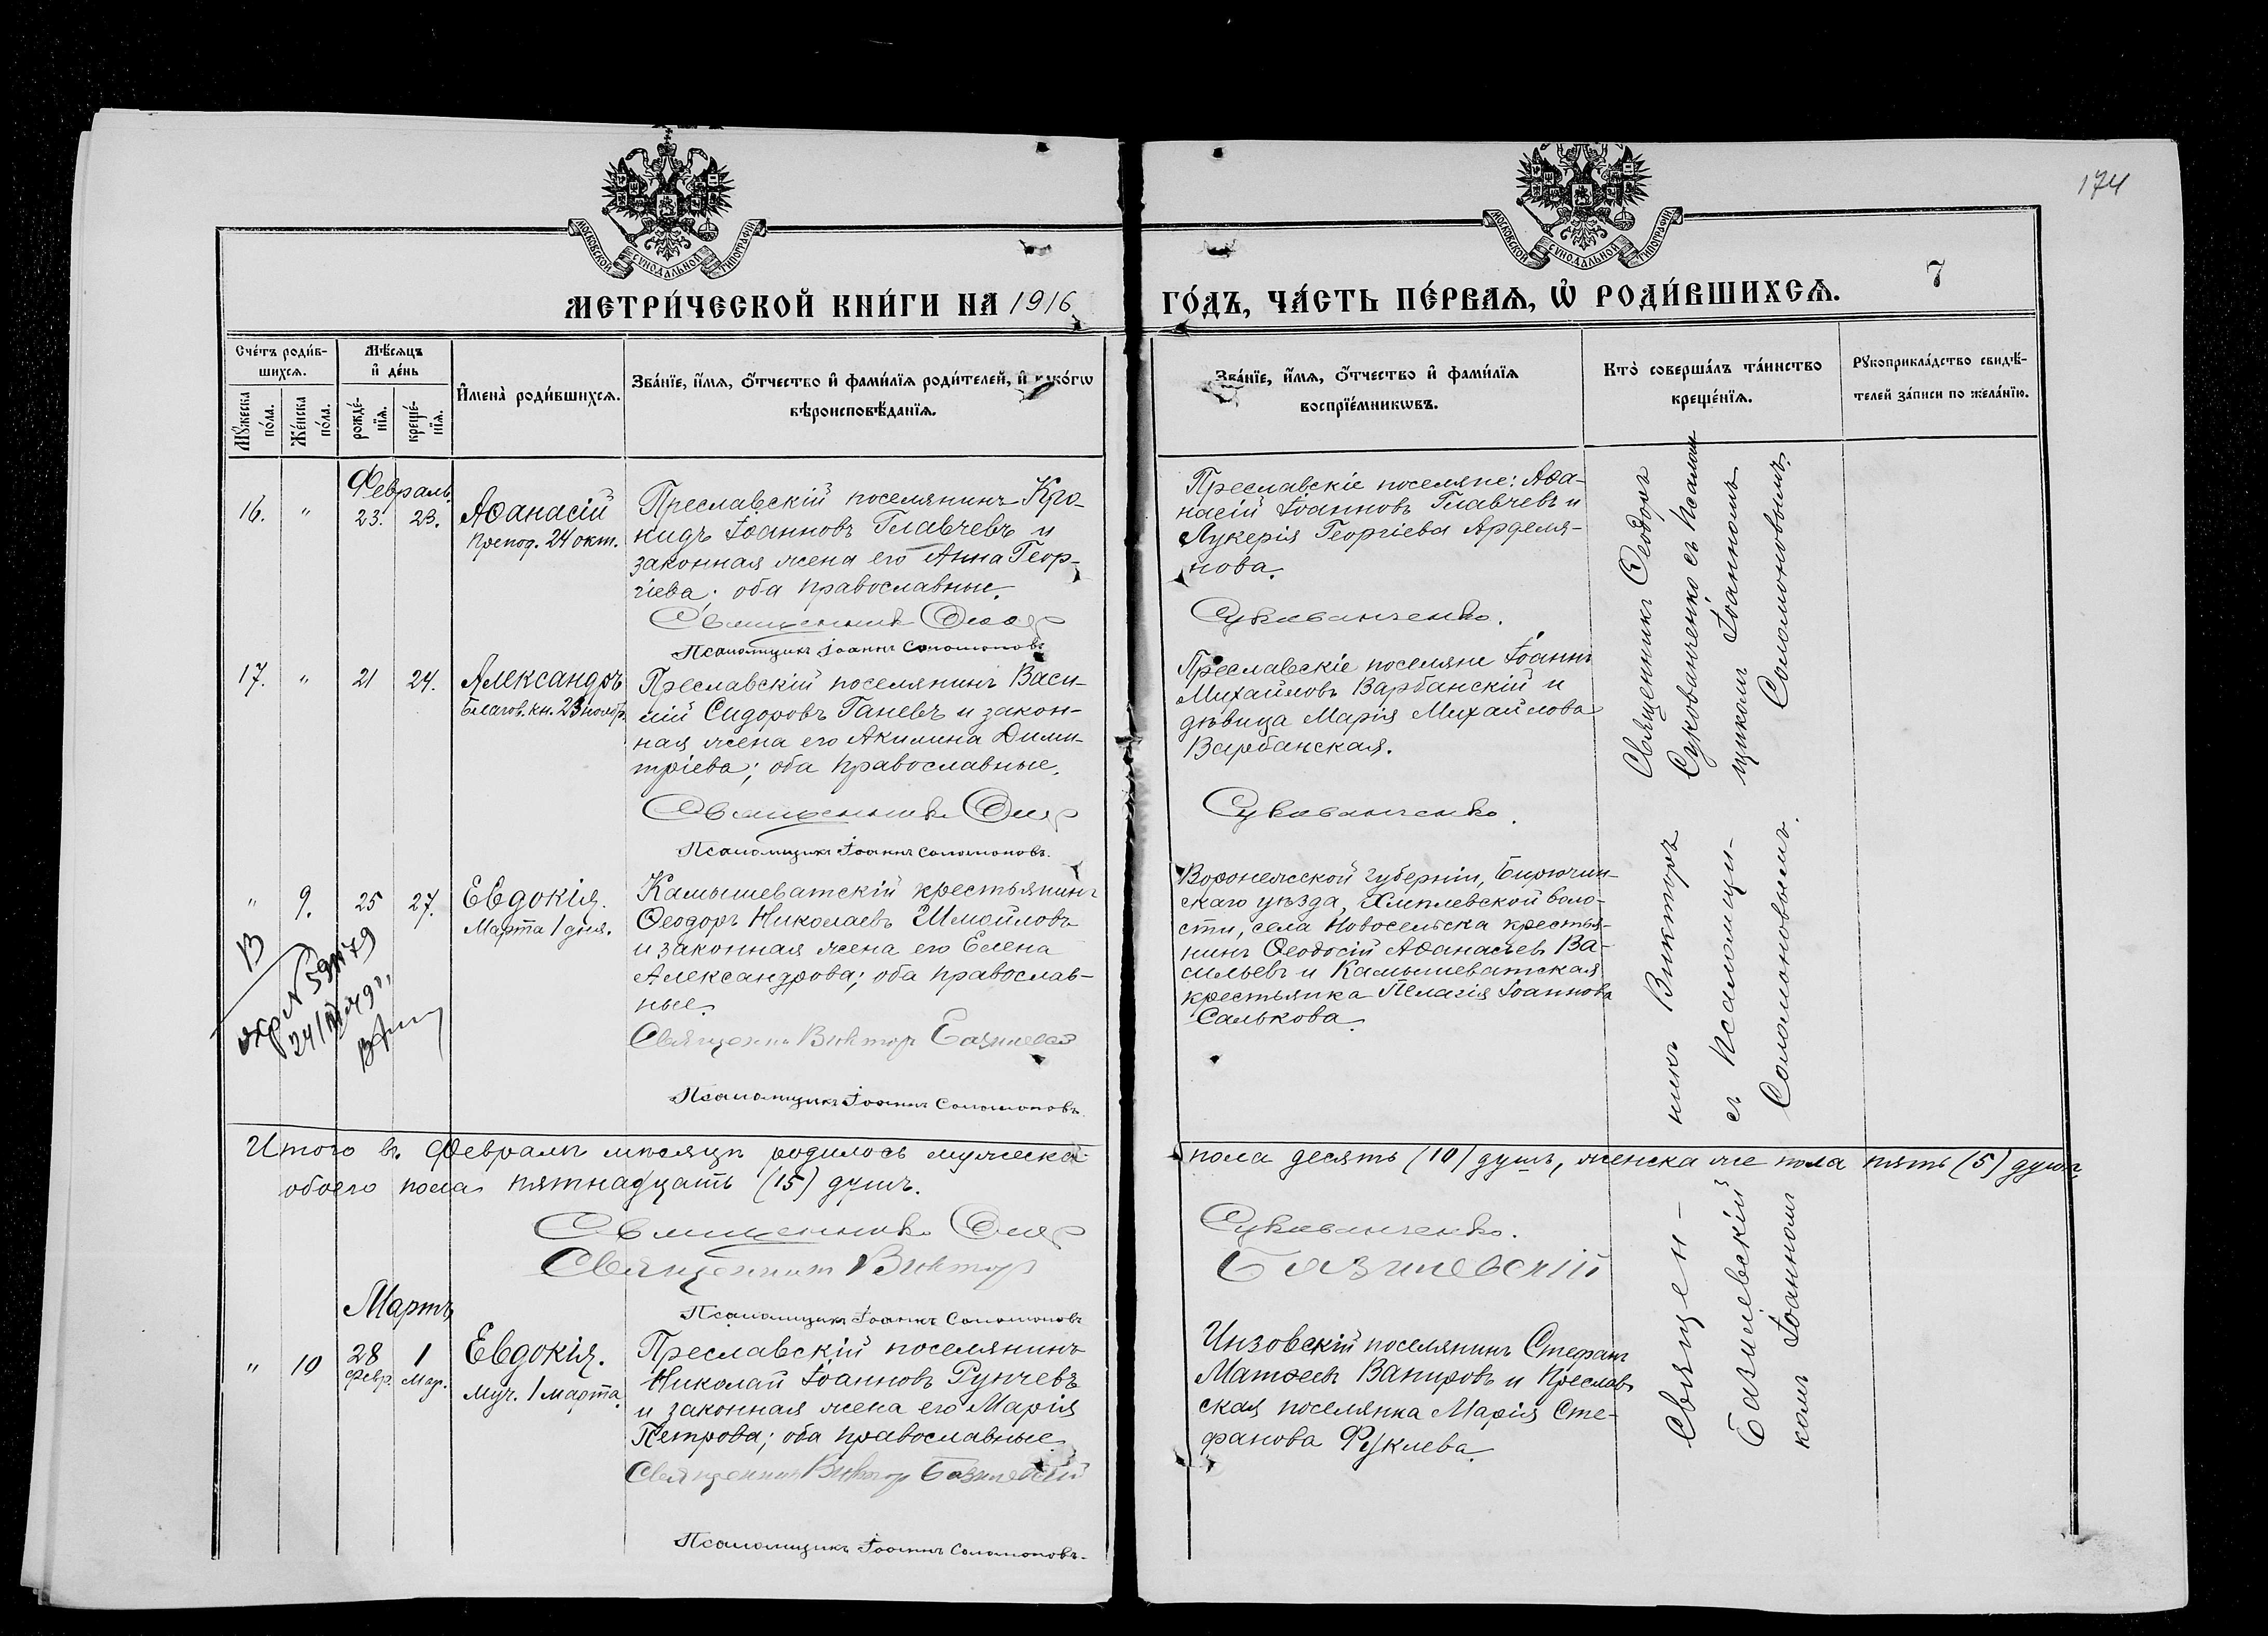 174
МОСКОВСКОЙ СѴНОДАЛЬНОЙ ТИПОГРАФІИ
МОСКОВСКОЙ СѴНОДАЛЬНОЙ ТИПОГРАФІИ
7
МЕТРИ́ЧЕСКОЙ КНИ́ГИ НА 1916
ГО́ДЪ, ЧА́СТЬ ПЕ́РВАѦ, Ѽ РОДИ́ВШИХСѦ.
Сче́тъ роди́в-
шихсѧ.
Мꙋ́жеска
по́ла.
Же́нска
по́ла.
Мѣ́сѧцъ
и҆ де́нь
рожде́-
нїѧ.
креще́-
нїѧ.
И҆мена̀ роди́вшихсѧ.
Зва́нїе, и҆́мѧ, ѻ҆́тчество и҆ фами́лїѧ роди́телей, и҆ како́гѡ
вѣроисповѣ́данїѧ.
Зва́нїе, и҆́мѧ, ѻ҆́тчество и҆ фами́лїѧ
воспрїе́мникѡвъ.
Кто̀ соверша́лъ та́инство
креще́нїѧ.
Рꙋкоприкла́дство свидѣ́-
телей за́писи по жела́нїю.
Февраль.
16. " 23. 23.
Аѳанасій
препод. 24 окт.
Преславскій поселянинъ Кро-
нидъ Іоанновъ Главчевъ и
законная жена его Анна Геор-
гіева; оба православные.
Священникъ Ѳеодоръ
Псаломщикъ Іоаннъ Соломоновъ
Преславскіе поселяне: Аѳа-
насій Іоанновъ Главчевъ и
Лукерія Георгіева Арделя-
нова.
Сукованченко.
Священникъ Ѳеодоръ
Сукованченко съ псалом-
щикомъ Іоанномъ
Соломоновымъ.
17. " 21 24.
Александръ
благов. кн. 23 ноябр.
Преславскій поселянинъ Васи-
лій Сидоровъ Ганевъ и закон-
ная жена его Акилина Дими-
тріева; оба православные.
Священникъ Ѳеодоръ
Псаломщикъ Іоаннъ Соломоновъ.
Преславскіе поселяне Іоаннъ
Михайловъ Варбанскій и
дѣвица Марія Михайлова
Варбанская.
Сукованченко.
" 9. 25 27.
Евдокія.
Марта 1 дня.
В
24/
Камышеватскій крестьянинъ
Ѳеодоръ Николаевъ Шмойловъ
и законная жена его Елена
Александрова; оба православ-
ные.
Священникъ Викторъ Базилевск
Псаломщикъ Іоаннъ Соломоновъ.
Воронежской губерніи, Бирючин-
скаго уѣзда, Хмѣлевской воло-
сти, села Новосельска крестья-
нинъ Ѳеодосій Аѳанасьевъ Ва-
сильевъ и Камышеватская
крестьянка Пелагія Іоаннова
Салькова.
Итого въ Февралѣ мѣсяцѣ родилось мужеска
пола десять (10) душъ, женска же пола пять (5) душъ,
обоего пола пятнадцать (15) душъ.
Священникъ Ѳеодоръ
Сукованченко.
Священникъ Викторъ
Базилевскій
Псаломщикъ Іоаннъ Соломоновъ
Мартъ
" 10 28 Февр. 1 Мар.
Евдокія.
муч. 1 марта
Преславскій поселянинъ
Николай Іоанновъ Рунчевъ
и законная жена его Марія
Петрова; оба православные.
Священникъ Викторъ Базилевскій
Псаломщикъ Іоаннъ Соломоновъ.
Инзовскій поселянинъ Стефанъ
Матѳеевъ Вапировъ и Преслав-
ская поселянка Марія Сте-
фанова Фуклева.
Священ-
никъ Викторъ
Базилевскій
съ псаломщи-
комъ Іоанномъ
Соломоновымъ.